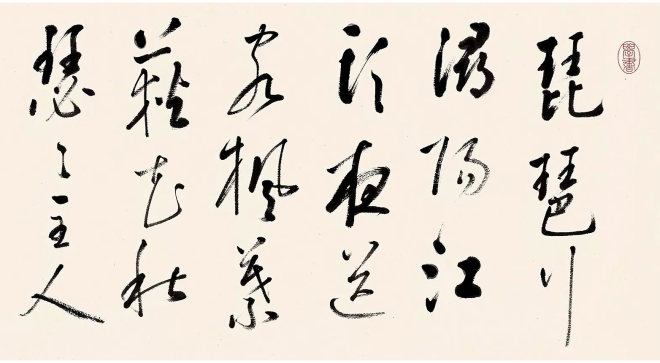 琵琶行
潯陽江
頭夜送
客楓葉
荻花秋
瑟々主人